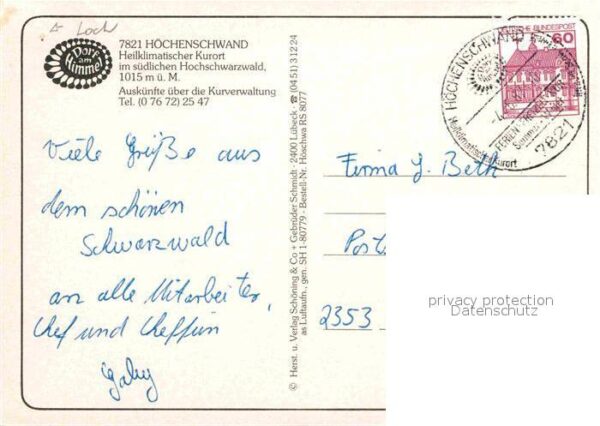 Loch
Dorf
am
Himmel
7821 HÖCHENSCHWAND
Heilklimatischer Kurort
im südlichen Hochschwarzwald,
1015 m ü. M.
Auskünfte über die Kurverwaltung
Tel. (0 76 72) 25 47
Viele Grüße aus
dem schönen
Schwarzwald
an alle Mitarbeiter,
Chef und Cheffin
Gaby
© Herst. u. Verlag Schöning & Co + Gebrüder Schmidt · 2400 Lübeck · ☎ (04 51) 3 12 24
as Luftaufn., gen. SH 1-80779 · Bestell-Nr. Höschwa RS 8077
60
BUNDESPOST
HÖCHENSCHWAND
Heilklimatischer Kurort
7821
Firma J. Beth
Post
2353
privacy protection
Datenschutz